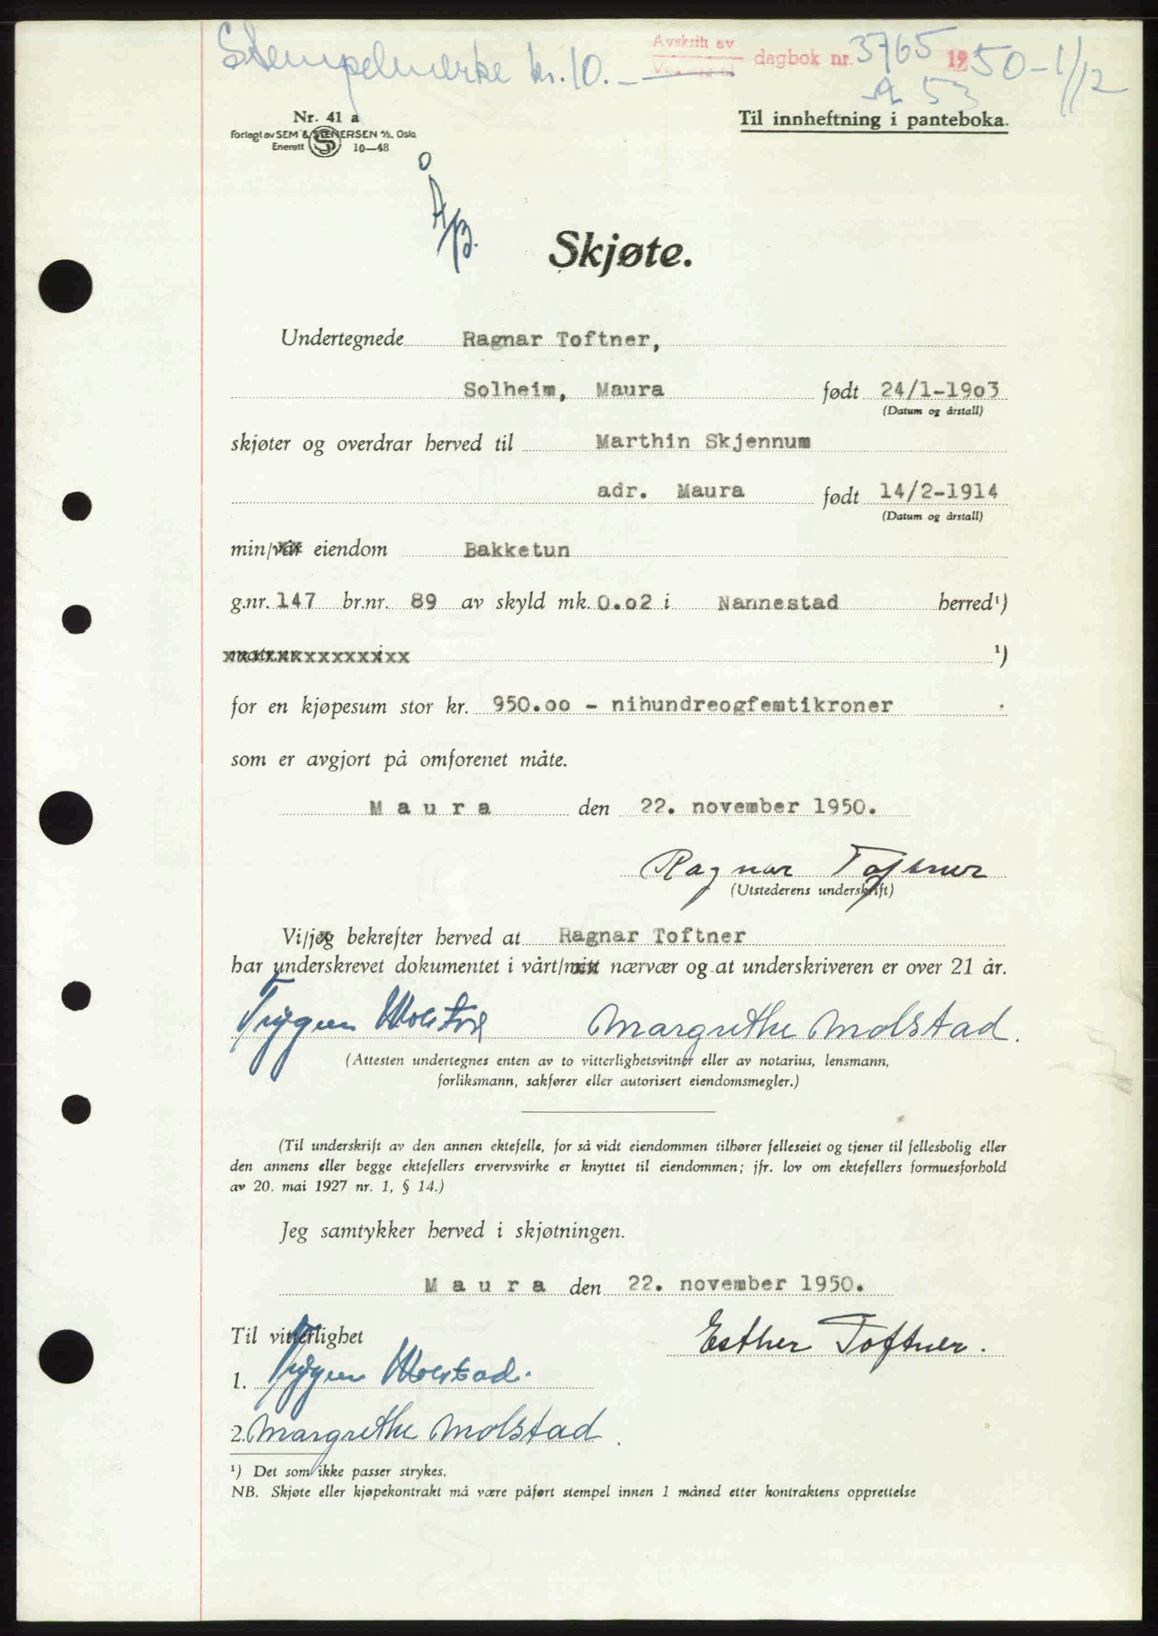 Stempelmerke kr. 10.-
Avskrift av
dagbok nr. 3765 1950-1/12
A 53
Nr. 41 a
Forlagt av SEM & STENERSEN A/S, Oslo
Enerett S 10—48
Til innheftning i panteboka.
Å/B.
Skjøte.
Undertegnede Ragnar Toftner,
Solheim, Maura født 24/1-1903
(Datum og årstall)
skjøter og overdrar herved til Marthin Skjennum
adr. Maura født 14/2-1914
(Datum og årstall)
min/vår eiendom Bakketun
g.nr. 147 br.nr. 89 av skyld mk. 0.02 i Nannestad herred¹)
¹)
for en kjøpesum stor kr. 950.00 - nihundreogfemtikroner .
som er avgjort på omforenet måte.
Maura den 22. november 1950.
Ragnar Toftner
(Utstederens underskrift)
Vi/jeg bekrefter herved at Ragnar Toftner
har underskrevet dokumentet i vårt/mitt nærvær og at underskriveren er over 21 år.
Trygve Molstad Margrethe Molstad.
(Attesten undertegnes enten av to vitterlighetsvitner eller av notarius, lensmann,
forliksmann, sakfører eller autorisert eiendomsmegler.)
(Til underskrift av den annen ektefelle, for så vidt eiendommen tilhører felleseiet og tjener til fellesbolig eller
den annens eller begge ektefellers ervervsvirke er knyttet til eiendommen; jfr. lov om ektefellers formuesforhold
av 20. mai 1927 nr. 1, § 14.)
Jeg samtykker herved i skjøtningen.
Maura den 22. november 1950.
Til vitterlighet
Esther Toftner.
1. Trygve Molstad.
2. Margrethe Molstad.
¹) Det som ikke passer strykes.
NB. Skjøte eller kjøpekontrakt må være påført stempel innen 1 måned etter kontraktens opprettelse